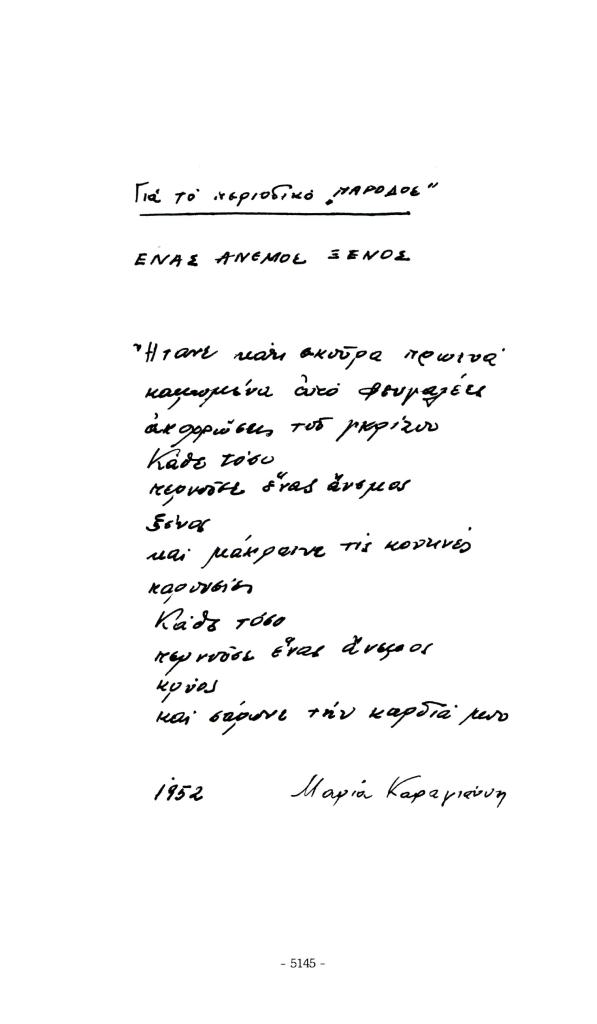 Γιά τό περιοδικό „ΠΑΡΟΔΟΣ"
ΕΝΑΣ ΑΝΕΜΟΣ ΞΕΝΟΣ
Ἤτανε κάτι σκοῦρα πρωινά
καμωμένα ἀπό φευγαλέες
ἀποχρώσεις τοῦ γκρίζου
Κάθε τόσο
περνοῦσε ἕνας ἄνεμος
ξένος
καί μάκραινε τίς
Κάθε τόσο
περνοῦσε ἕνας ἄνεμος
κρύος
καί σάρωνε τήν καρδιά μου
1952 Μαρία Καραγιάννη
- 5145 -